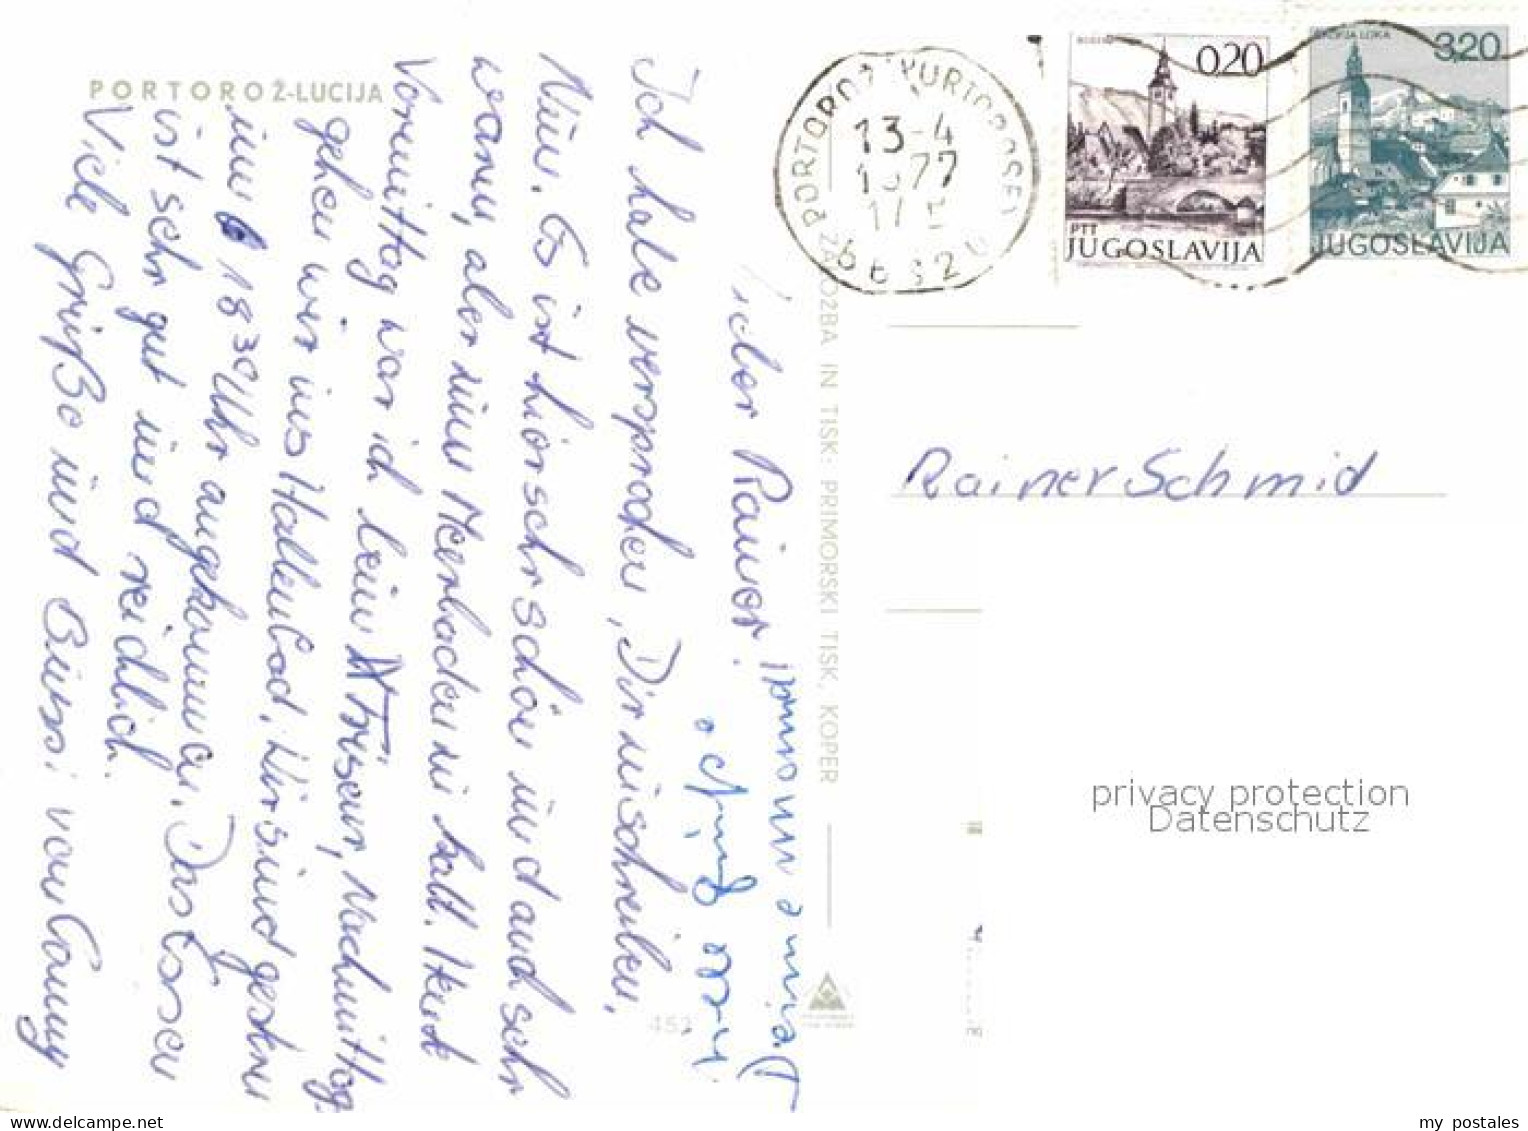 PORTOROŽ-LUCIJA
Lieber Rainer!
Ich habe versprochen, Dir zu schreiben.
Nun. Es ist hier sehr schön und auch sehr
warm, aber zum Meerbaden zu kalt. Heute
Vormittag war ich beim Friseur, Nachmittag
gehen wir ins Hallenbad. Wir sind gestern
um 18 30 Uhr angekommen. Das Essen
ist sehr gut und reichlich.
Viele Grüße und Bussi von
Deine Mommi
ZALOŽBA IN TISK: PRIMORSKI TISK, KOPER
452
PORTOROŽ PORTOROSE
13-4
1977
17
66320
0,20
PTT
JUGOSLAVIJA
ŠKOFJA LOKA
3,20
JUGOSLAVIJA
Rainer Schmid
privacy protection
Datenschutz
www.delcampe.net
my_postales